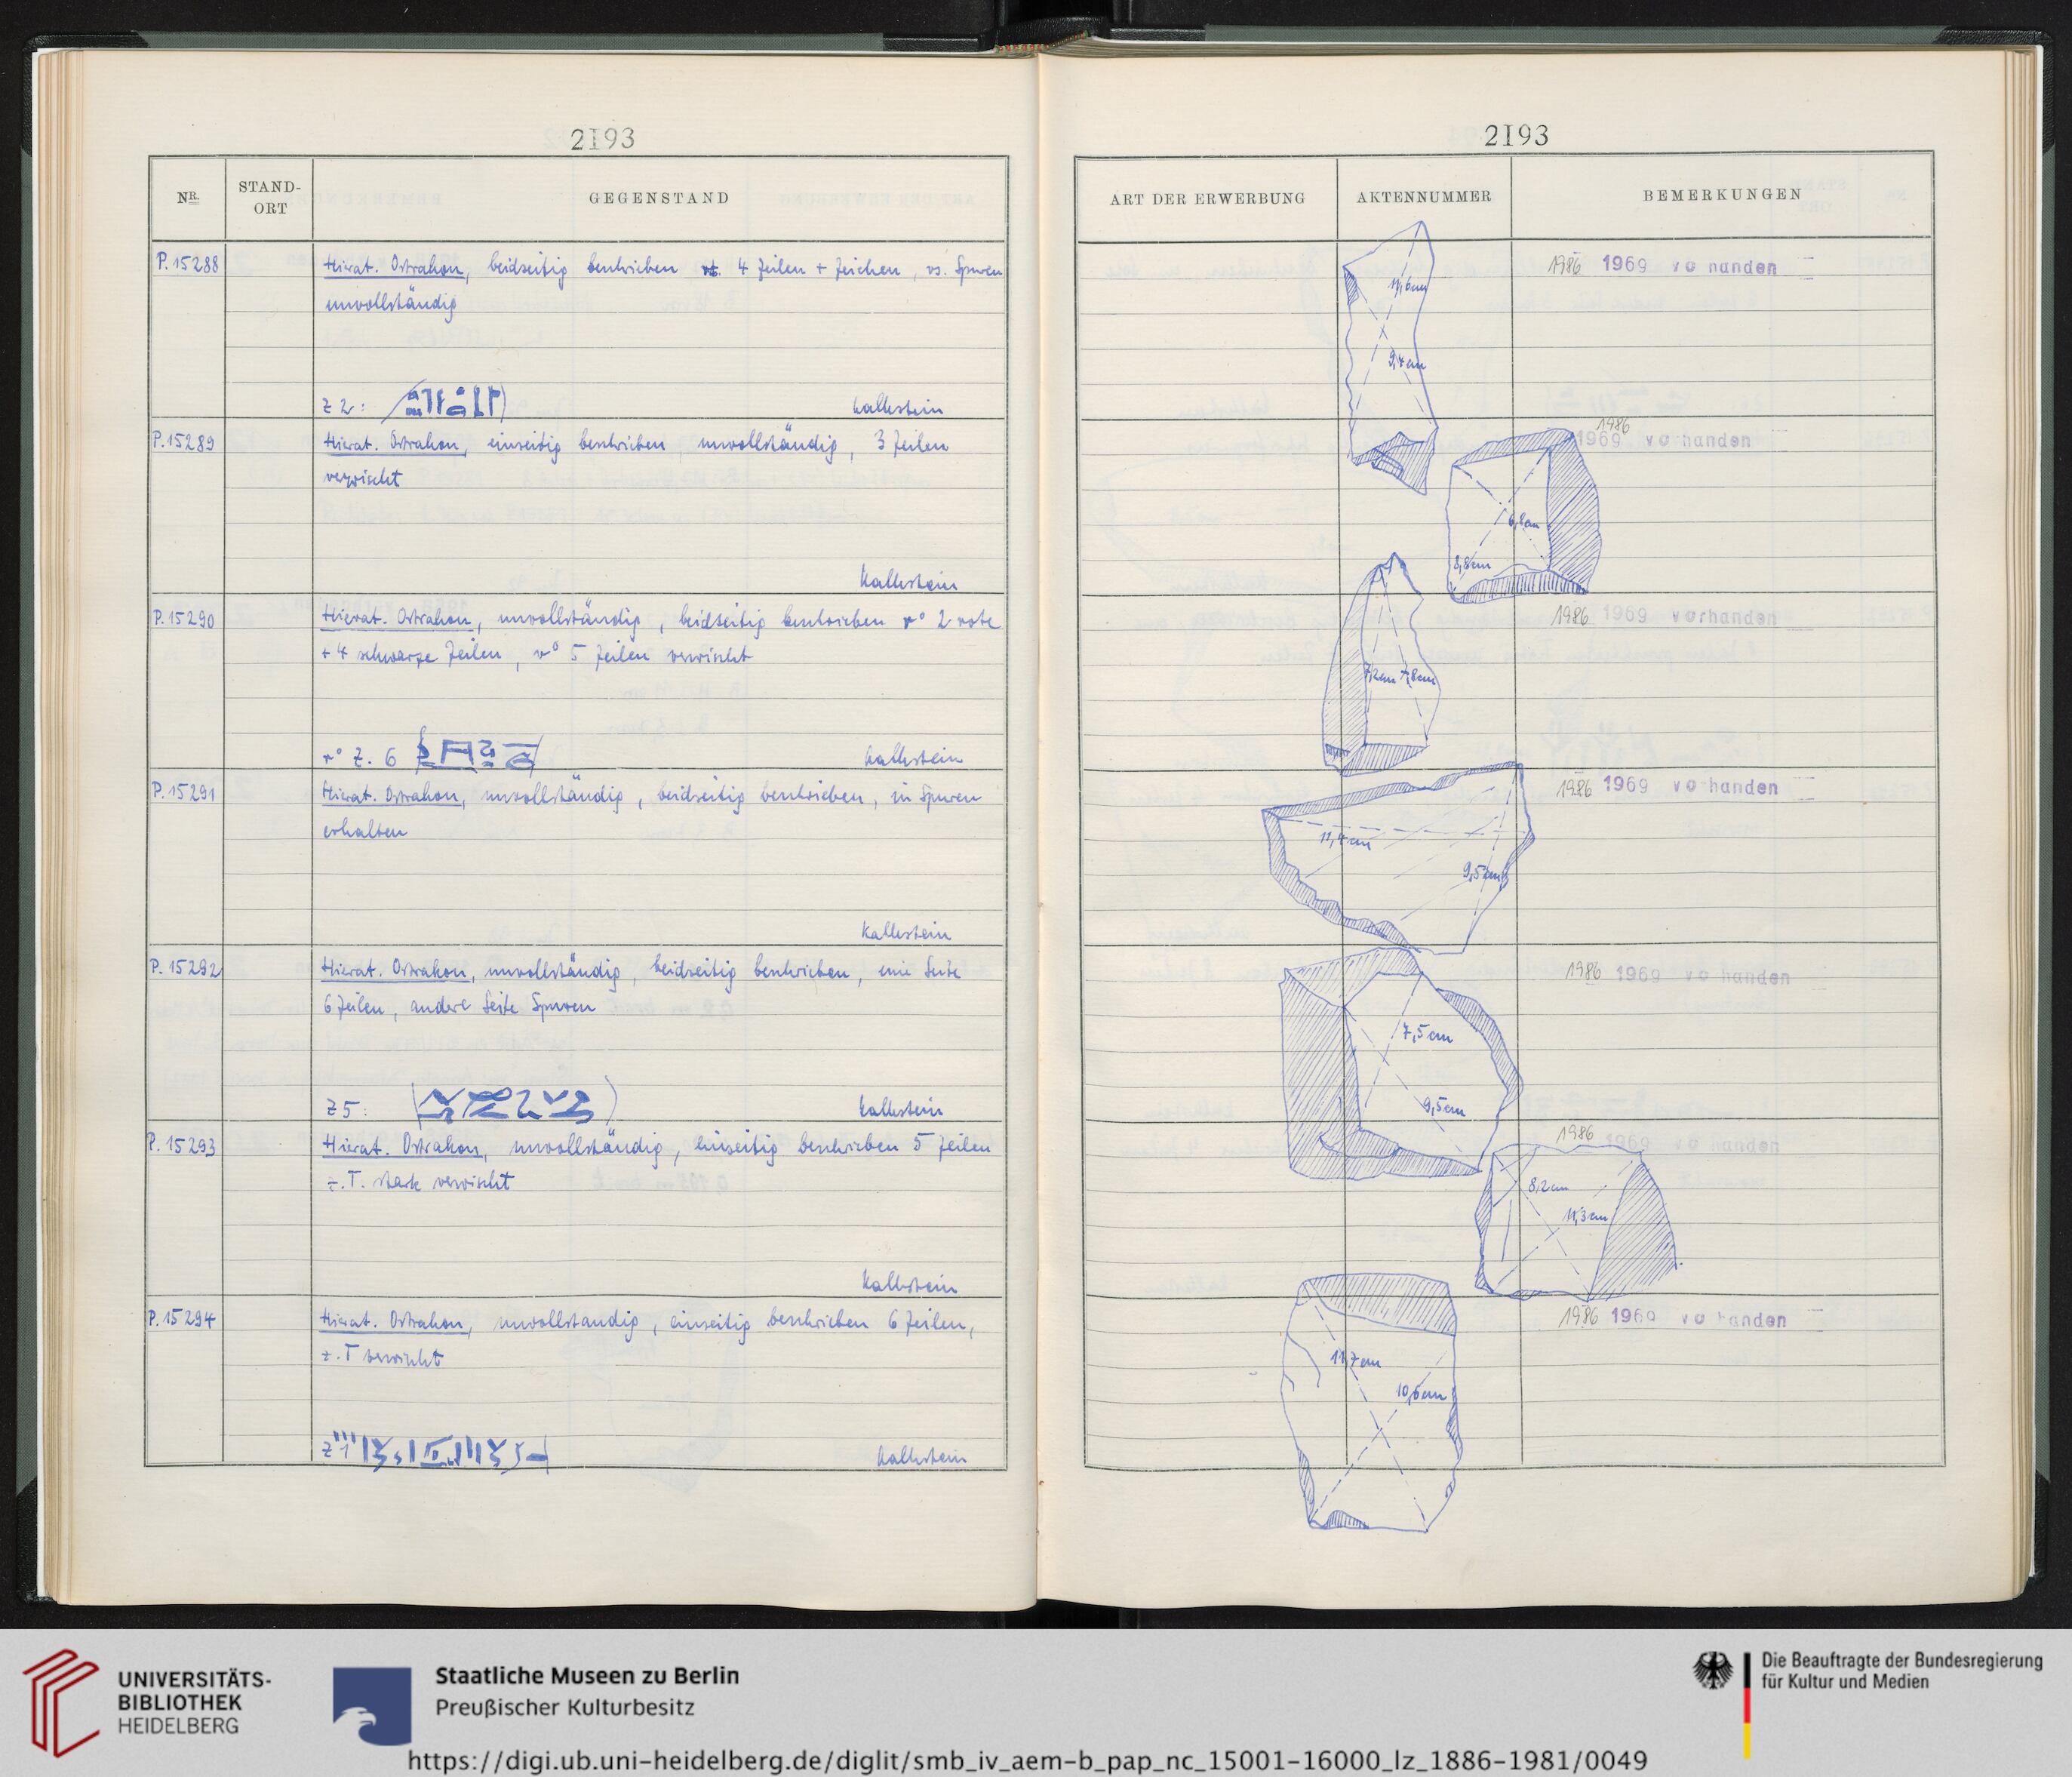 2193
NR.
STAND-
ORT
GEGENSTAND
P. 15288
Hierat. Ostrakon, beidseitig beschrieben 4 Zeilen + Zeichen, vs. Spuren
unvollständig
Z 2:
Kalkstein
P. 15289
Hierat. Ostrakon, einseitig beschrieben, unvollständig, 3 Zeilen
verwischt
Kalkstein
P. 15290
Hierat. Ostrakon, unvollständig, beidseitig beschrieben r° 2 rote
+ 4 schwarze Zeilen, v° 5 Zeilen verwischt
r° Z. 6
Kalkstein
P. 15291
Hierat. Ostrakon, unvollständig, beidseitig beschrieben, in Spuren
erhalten
Kalkstein
P. 15292
Hierat. Ostrakon, unvollständig, beidseitig beschrieben, eine Seite
6 Zeilen, andere Seite Spuren
Z 5:
Kalkstein
P. 15293
Hierat. Ostrakon, unvollständig, einseitig beschrieben 5 Zeilen
z.T. stark verwischt
Kalkstein
P. 15294
Hierat. Ostrakon, unvollständig, einseitig beschrieben 6 Zeilen,
z.T verwischt
Z 1
Kalkstein
2193
ART DER ERWERBUNG
AKTENNUMMER
BEMERKUNGEN
11,6cm
9,4cm
1986 1969 vorhanden
1986
1969 vorhanden
8,8cm
7,2cm 7,8cm
1986 1969 vorhanden
11,4cm
9,5cm
1986 1969 vorhanden
7,5cm
9,5cm
1986 1969 vorhanden
8,2cm
11,3cm
1986 1969 vorhanden
11,7cm
10,6cm
1986 1969 vorhanden
UNIVERSITÄTS-
BIBLIOTHEK
HEIDELBERG
Staatliche Museen zu Berlin
Preußischer Kulturbesitz
Die Beauftragte der Bundesregierung
für Kultur und Medien
https://digi.ub.uni-heidelberg.de/diglit/smb_iv_aem-b_pap_nc_15001-16000_lz_1886-1981/0049